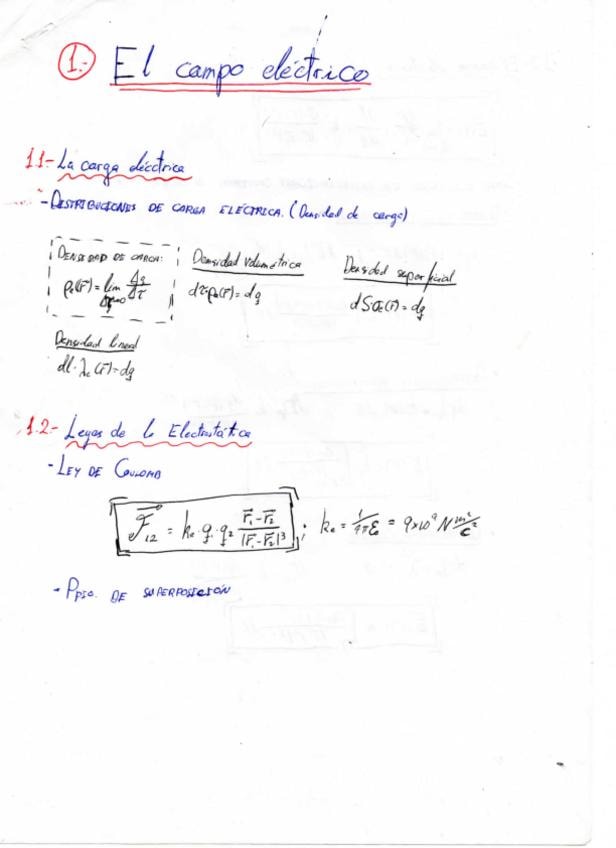 1.- El campo eléctrico
1.1- La carga eléctrica
- DISTRIBUCIONES DE CARGA ELÉCTRICA. (Densidad de carga)
DENSIDAD DE CARGA:
ρe(r̄) = lim Δτ→0 Δq/Δτ
Densidad volumétrica
dτ·ρe(r̄) = dq
Densidad superficial
dSσe(r̄) = dq
Densidad lineal
dl·λe(r̄) = dq
1.2- Leyes de la Electrostática
- LEY DE COULOMB
F⃗12 = ke·q·q2 (r⃗1-r⃗2)/|r⃗1-r⃗2|³ ; ke = 1/4πε0 = 9x10⁹ N m²/C²
- PPIO. DE SUPERPOSICIÓN